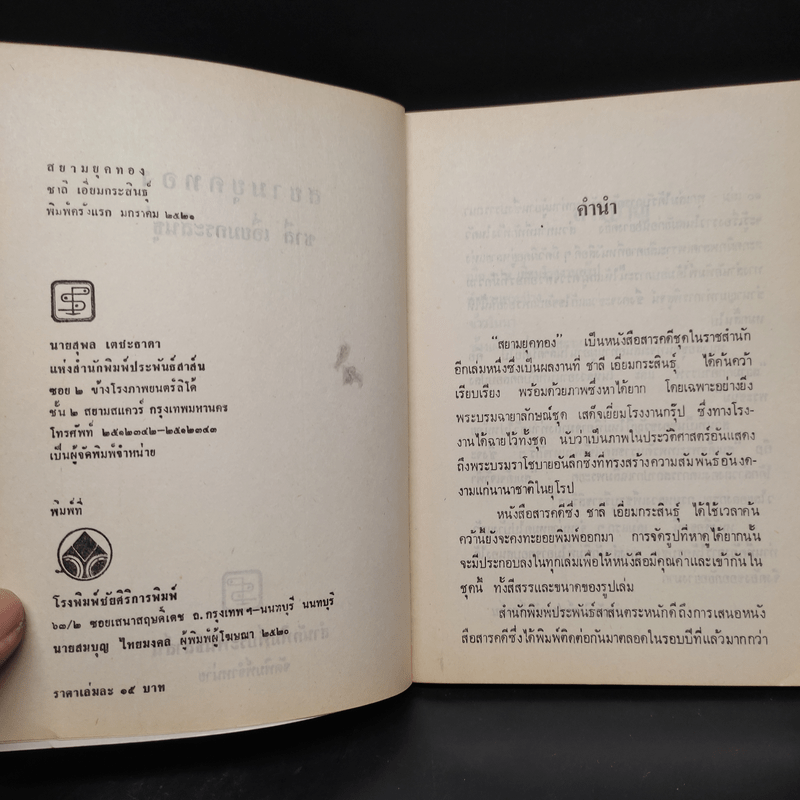 สยามยุคทอง
ชาลี เอี่ยมกระสินธุ์
พิมพ์ครั้งแรก มกราคม ๒๕๒๑
นายสุพล เตชะธาดา
แห่งสำนักพิมพ์ประพันธ์สาส์น
ซอย ๒ ข้างโรงภาพยนตร์ลิโด้
ชั้น ๒ สยามสแควร์ กรุงเทพมหานคร
โทรศัพท์ ๒๕๑๒๓๔๒–๒๕๑๒๓๔๓
เป็นผู้จัดพิมพ์จำหน่าย
พิมพ์ที่
โรงพิมพ์ชัยศิริการพิมพ์
๖๓/๒ ซอยเสนาสฤษดิ์เดช ถ.กรุงเทพฯ–นนทบุรี นนทบุรี
นายสมบุญ ไทยมงคล ผู้พิมพ์ผู้โฆษณา ๒๕๒๐
ราคาเล่มละ ๑๕ บาท
คำนำ
“สยามยุคทอง” เป็นหนังสือสารคดีชุดในราชสำนัก
อีกเล่มหนึ่งซึ่งเป็นผลงานที่ ชาลี เอี่ยมกระสินธุ์ ได้ค้นคว้า
เรียบเรียง พร้อมด้วยภาพซึ่งหาได้ยาก โดยเฉพาะอย่างยิ่ง
พระบรมฉายาลักษณ์ชุด เสด็จเยี่ยมโรงงานกรุ๊ป ซึ่งทางโรง-
งานได้ฉายไว้ทั้งชุด นับว่าเป็นภาพในประวัติศาสตร์อันแสดง
ถึงพระบรมราโชบายอันลึกซึ้งที่ทรงสร้างความสัมพันธ์อันงด-
งามแก่นานาชาติในยุโรป
หนังสือสารคดีซึ่ง ชาลี เอี่ยมกระสินธุ์ ได้ใช้เวลาค้น
คว้านี้ยังจะคงทะยอยพิมพ์ออกมา การจัดรูปที่หาดูได้ยากนั้น
จะมีประกอบลงในทุกเล่มเพื่อให้หนังสือมีคุณค่าและเข้ากันใน
ชุดนี้ ทั้งสีสรรและขนาดของรูปเล่ม
สำนักพิมพ์ประพันธ์สาส์นตระหนักดีถึงการเสนอหนัง
สือสารคดีซึ่งได้พิมพ์ติดต่อกันมาตลอดในรอบปีที่แล้วมากกว่า